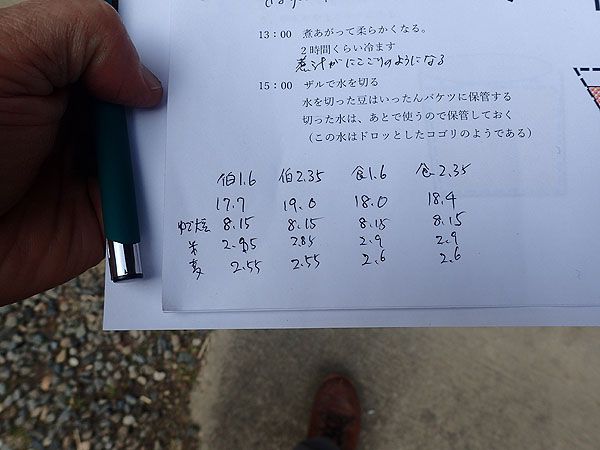 13：00　煮あがって柔らかくなる。
２時間くらい冷ます
煮汁がにこごりのようになる
15：00　ザルで水を切る
水を切った豆はいったんバケツに保管する
切った水は、あとで使うので保管しておく
（この水はドロッとしたコゴリのようである）
伯1.6　伯2.35　食1.6　食2.35
17.7　19.0　18.0　18.4
ゆで大豆　8.15　8.15　8.15　8.15
米　2.85　2.85　2.9　2.9
麦　2.55　2.55　2.6　2.6